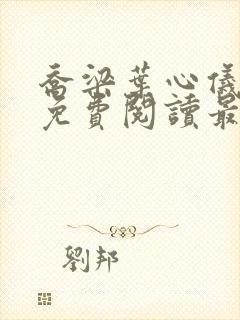 喬梁葉心儀
免費閱讀最
劉邦